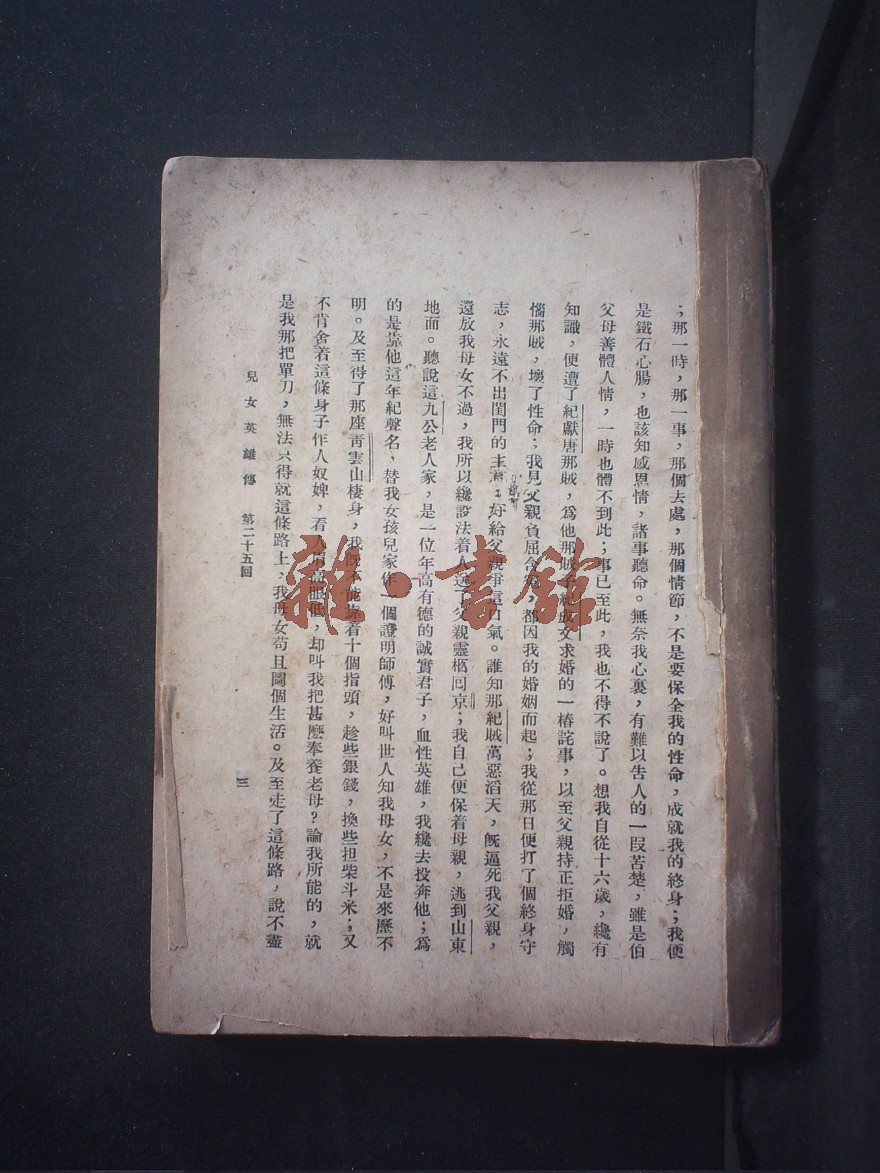 ；那一時，那一事，那個去處，那個情節，不是要保全我的性命，成就我的終身；我便
是鐵石心腸，也該知感恩情，諸事聽命。無奈我心裏，有難以告人的一段苦楚，雖是伯
父母善體人情，一時也體不到此；事已至此，我也不得不說了。想我自從十六歲，纔有
知識，便遭了紀獻唐那賊，爲他那賊子紀成文求婚的一樁詫事，以至父親持正拒婚，觸
惱那賊，壞了性命；我見父親負屈含冤，都因我的婚姻而起；我從那日便打了個終身守
志，永遠不出閨門的主，好給父親爭這口氣。誰知那紀賊萬惡滔天，旣逼死我父親，
還放我母女不過，我所以纔設法着人送父親靈柩囘京；我自己便保着母親，逃到山東
地面。聽說這九公老人家，是一位年高有德的誠實君子，血性英雄，我纔去投奔他；爲
的是靠他這年紀聲名，替我女孩兒家作一個證明師傅，好叫世人知我母女，不是來歷不
明。及至得了那座青雲山棲身，我旣不能靠着十個指頭，趁些銀錢，換些担柴斗米；又
不肯舍着這條身子作人奴婢，看人眉高眼低，却叫我把甚麽奉養老母？論我所能的，就
是我那把單刀，無法只得就這條路上，我母女苟且圖個生活。及至走了這條路，說不盡
兒女英雄傳　第二十五回
三
雜·書館